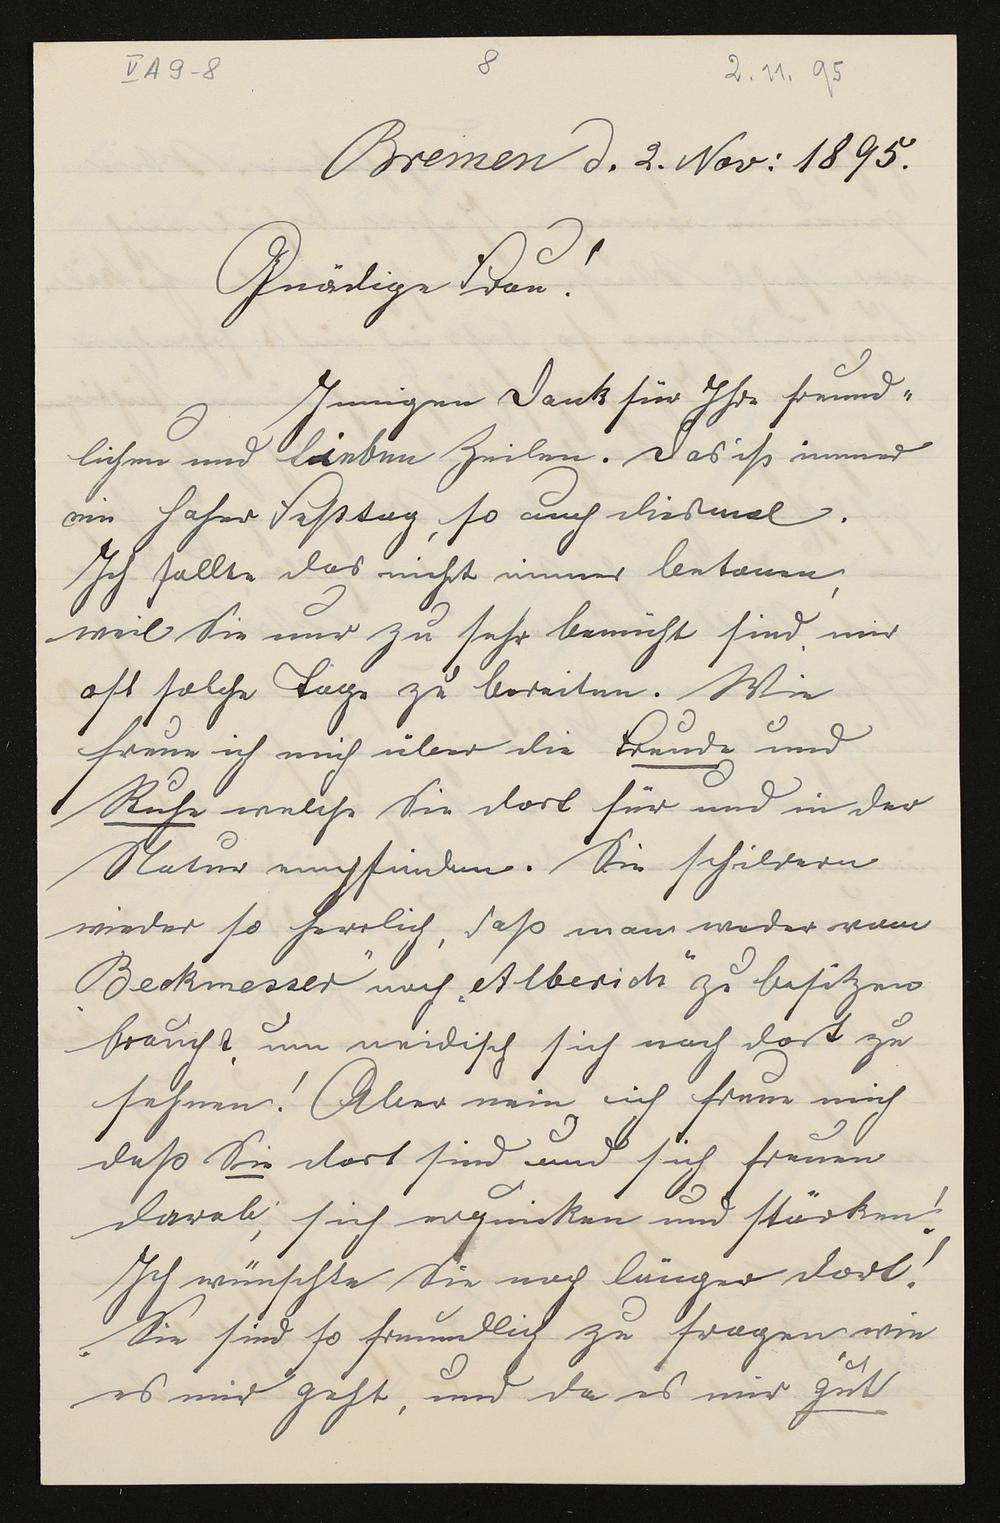 V A 9-8 8 2.11.95
Bremen d. 2. Nov: 1895.
Gnädige Frau!
Innigen Dank für Ihre freund-
lichen und lieben Zeilen. Das ist immer
ein hoher Festtag, so auch diesmal.
Ich sollte das nicht immer betonen,
weil Sie nur zu sehr bemüht sind, mir
oft solche Tage zu bereiten. Wie
freue ich mich über die Freude und
Ruhe welche Sie dort für und in der
Natur empfinden. Sie schildern
wieder so herrlich, daß man weder vom
„Beckmesser" noch „Alberich" zu besitzen
braucht, um neidisch sich nach dort zu
sehnen! Aber nein, ich freue mich
daß Sie dort sind und sich freuen
darob, sich erquicken und stärken!
Ich wünschte Sie noch länger dort!
Sie sind so freundlich zu fragen wie
es mir geht, und da es mir gut